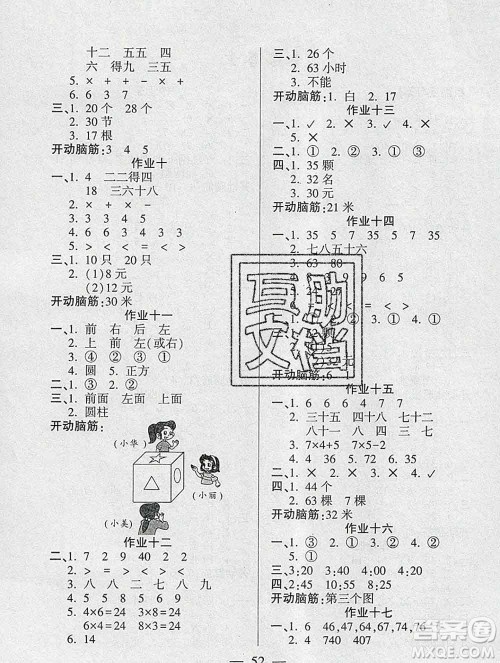 十二 五五 四
六 得九 三五
5. × + + - ×
6. 6 3 7
三、1. 20个 28个
2. 30节
3. 17根
开动脑筋:3 4 5
作业十
一、1. 4 二二得四
18 三六十八
2. × - + ÷
3. 6 7 6 8 7
4. 6 7 4 6 3
5. > < = > <
三、1. 10只 20只
2. (1)8元
(2)12元
开动脑筋:30米
作业十一
一、1. 前 右 后 左
2. 上 前 左(或右)
3. ④ ② ③ ①
4. 圆 5. 正方
二、1. ② 2. ① ③
三、1. 前面 左面 上面
2. 圆柱
开动脑筋:
(小华)
(小丽)
(小美)
作业十二
二、1. 7 2 9 40 2 2
2. > = > < < <
3. 八 八 二 七 八 九
4. 8 7 5 7 8 7
5. 4×6=24 3×8=24
6×4=24 8×3=24
6. 14
三、1. 26个
2. 63小时
3. 不能
开动脑筋:1. 白 2. 17
作业十三
二、1. ✓ 2. × 3. ✓ 4. ×
三、1. ① 2. ① 3. ②
四、1. 35颗
2. 32名
3. 30只
开动脑筋:21米
作业十四
一、1. 35 5 7 5 7 35
2. 七八五十六
3. 63 80
5. 24
互助
文档
开动脑筋:6 1
作业十五
一、1. 6 6 6 4 7 7
2. 三十五 四十八 七十二
八十一 八 四 三 七
3. 7×4+5 7×5-2
二、1. × 2. × 3. × 4. ✓
三、1. 44个
2. 5棵 7棵 8棵
开动脑筋:32米
作业十六
二、1. ③ 2. ② 3. ② 4. ②
三、3:20 4:20 8:35
四、1. ① 2. ② 3. ②
开动脑筋:第三个图
作业十七
一、1. 6 46,47,64,67,74,76
2. 4 740 407
52
作业帮答案
MXQE.COM